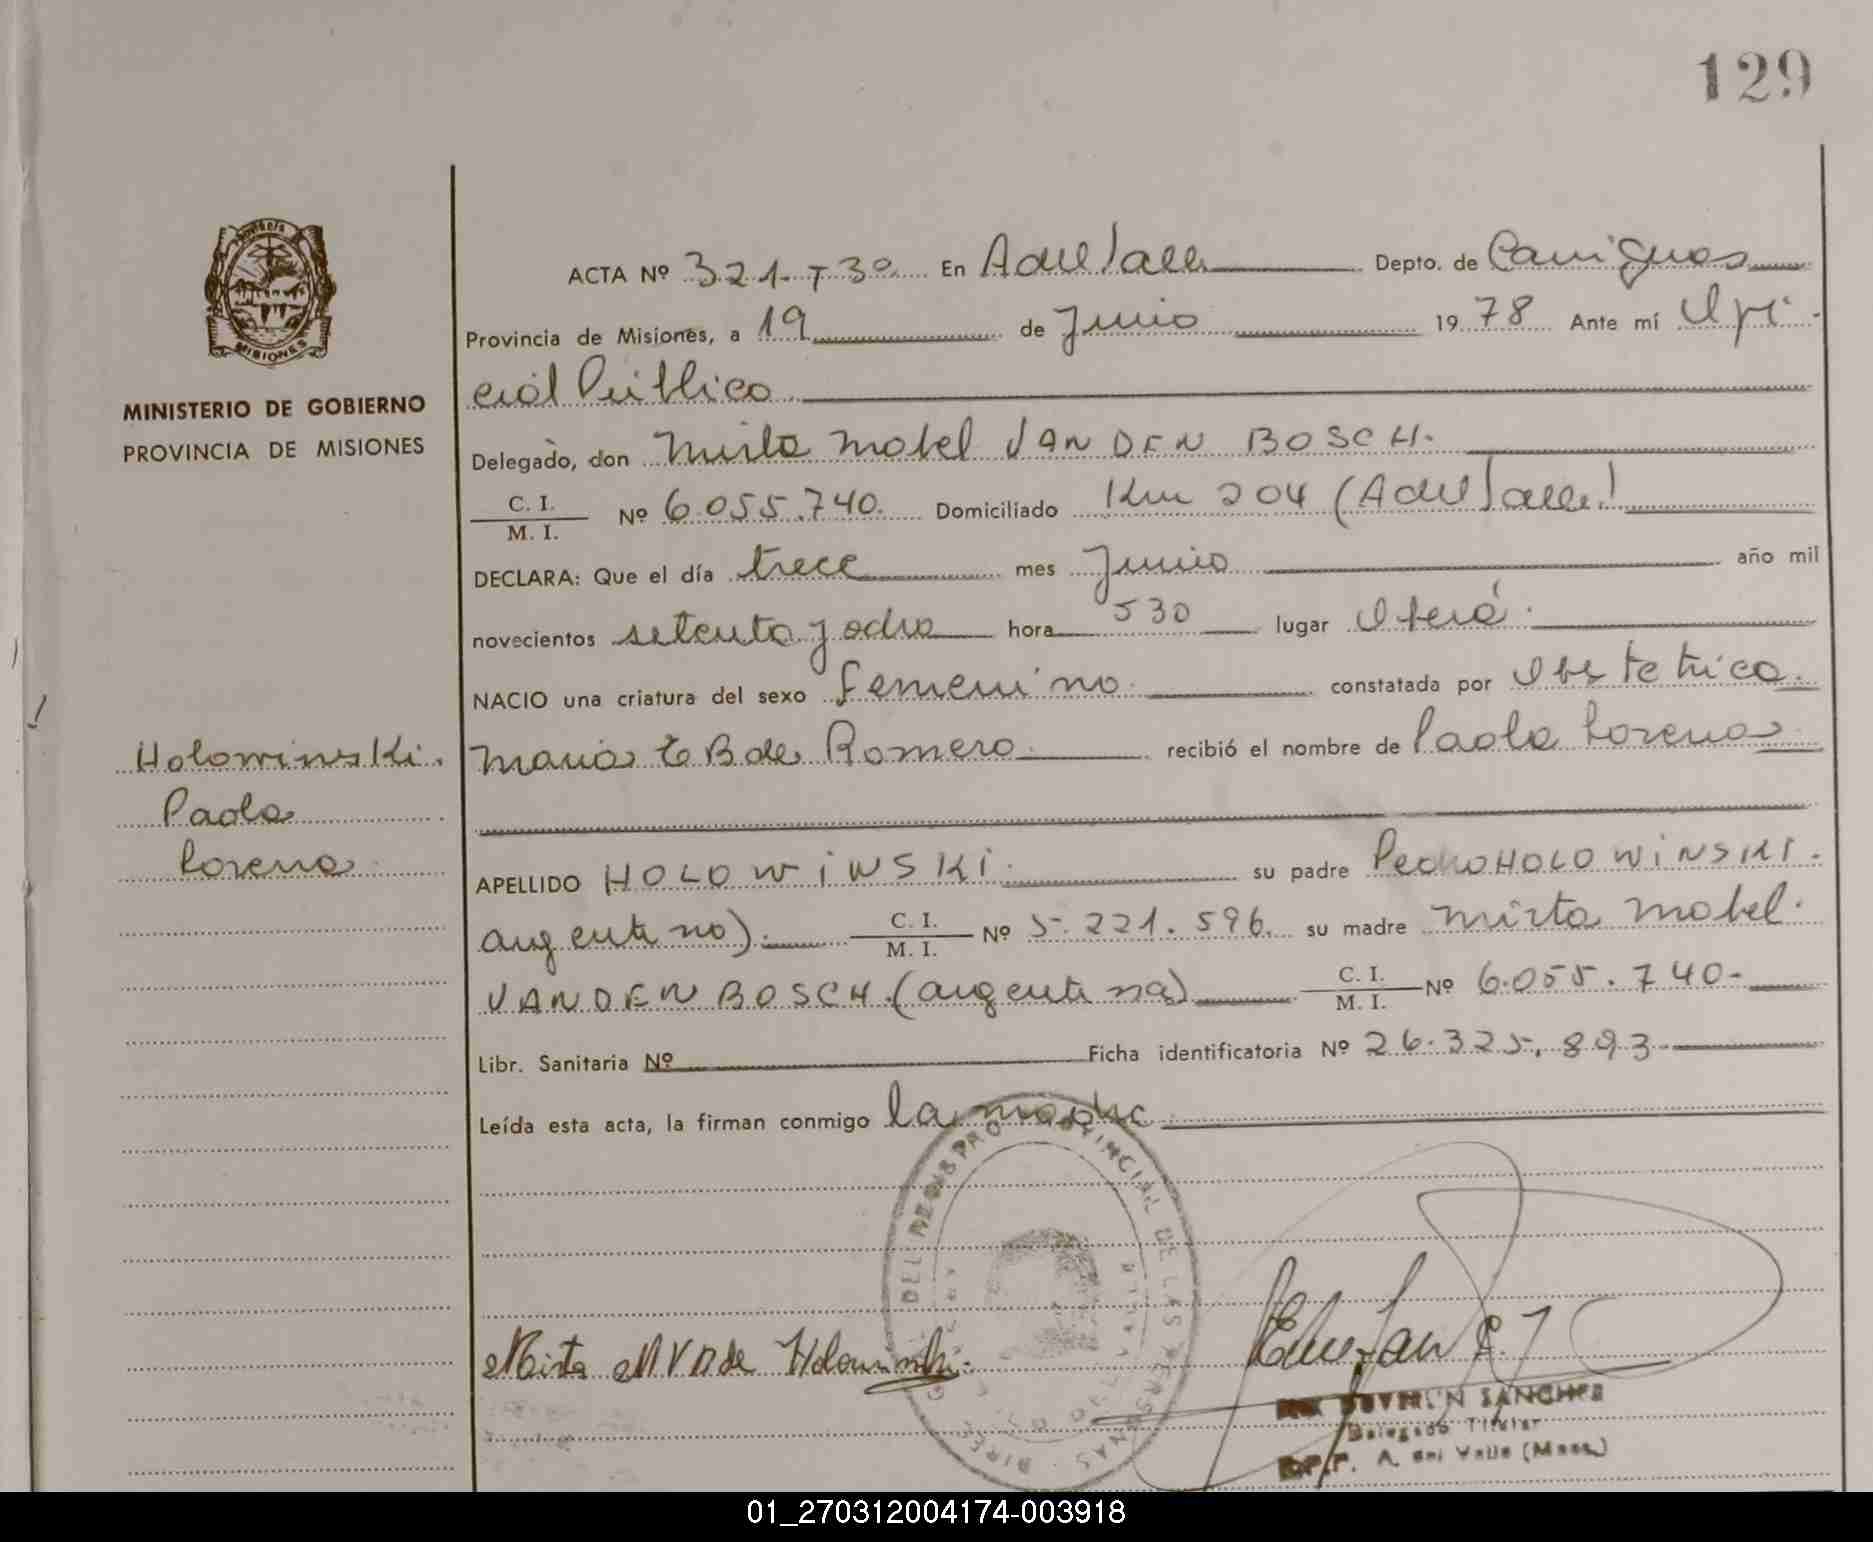 129
MISIONES
MINISTERIO DE GOBIERNO
PROVINCIA DE MISIONES
ACTA Nº 321- T 3º En A del Valle Depto. de Cainguas
Provincia de Misiones, a 19 de Junio 1978 Ante mí Ofi-
cial Público
Delegado, don Mirta Mabel VANDEN BOSCH.
C. I.
M. I. Nº 6.055.740. Domiciliado Km 204 (A del Valle)
DECLARA: Que el día trece mes Junio año mil
novecientos setenta y ocho hora 530 lugar Oberá.
NACIO una criatura del sexo femenino. constatada por Obstetrica.
Holowinski. Maria E B de Romero. recibió el nombre de Paola Lorena
Paola
Lorena
APELLIDO HOLOWINSKI. su padre Pedro HOLOWINSKI.
argentino). C. I.
M. I. Nº 5.221.596. su madre Mirta Mabel.
VANDEN BOSCH.(argentina) C. I.
M. I. Nº 6.055.740-
Libr. Sanitaria Nº Ficha identificatoria Nº 26.325.893-
Leída esta acta, la firman conmigo la madre
PROVINCIAL DE LAS PERSONAS
Mirta M V D de Holowinski.
SANCHEZ
Delegado Titular
A. del Valle (Mnes.)
01_270312004174-003918